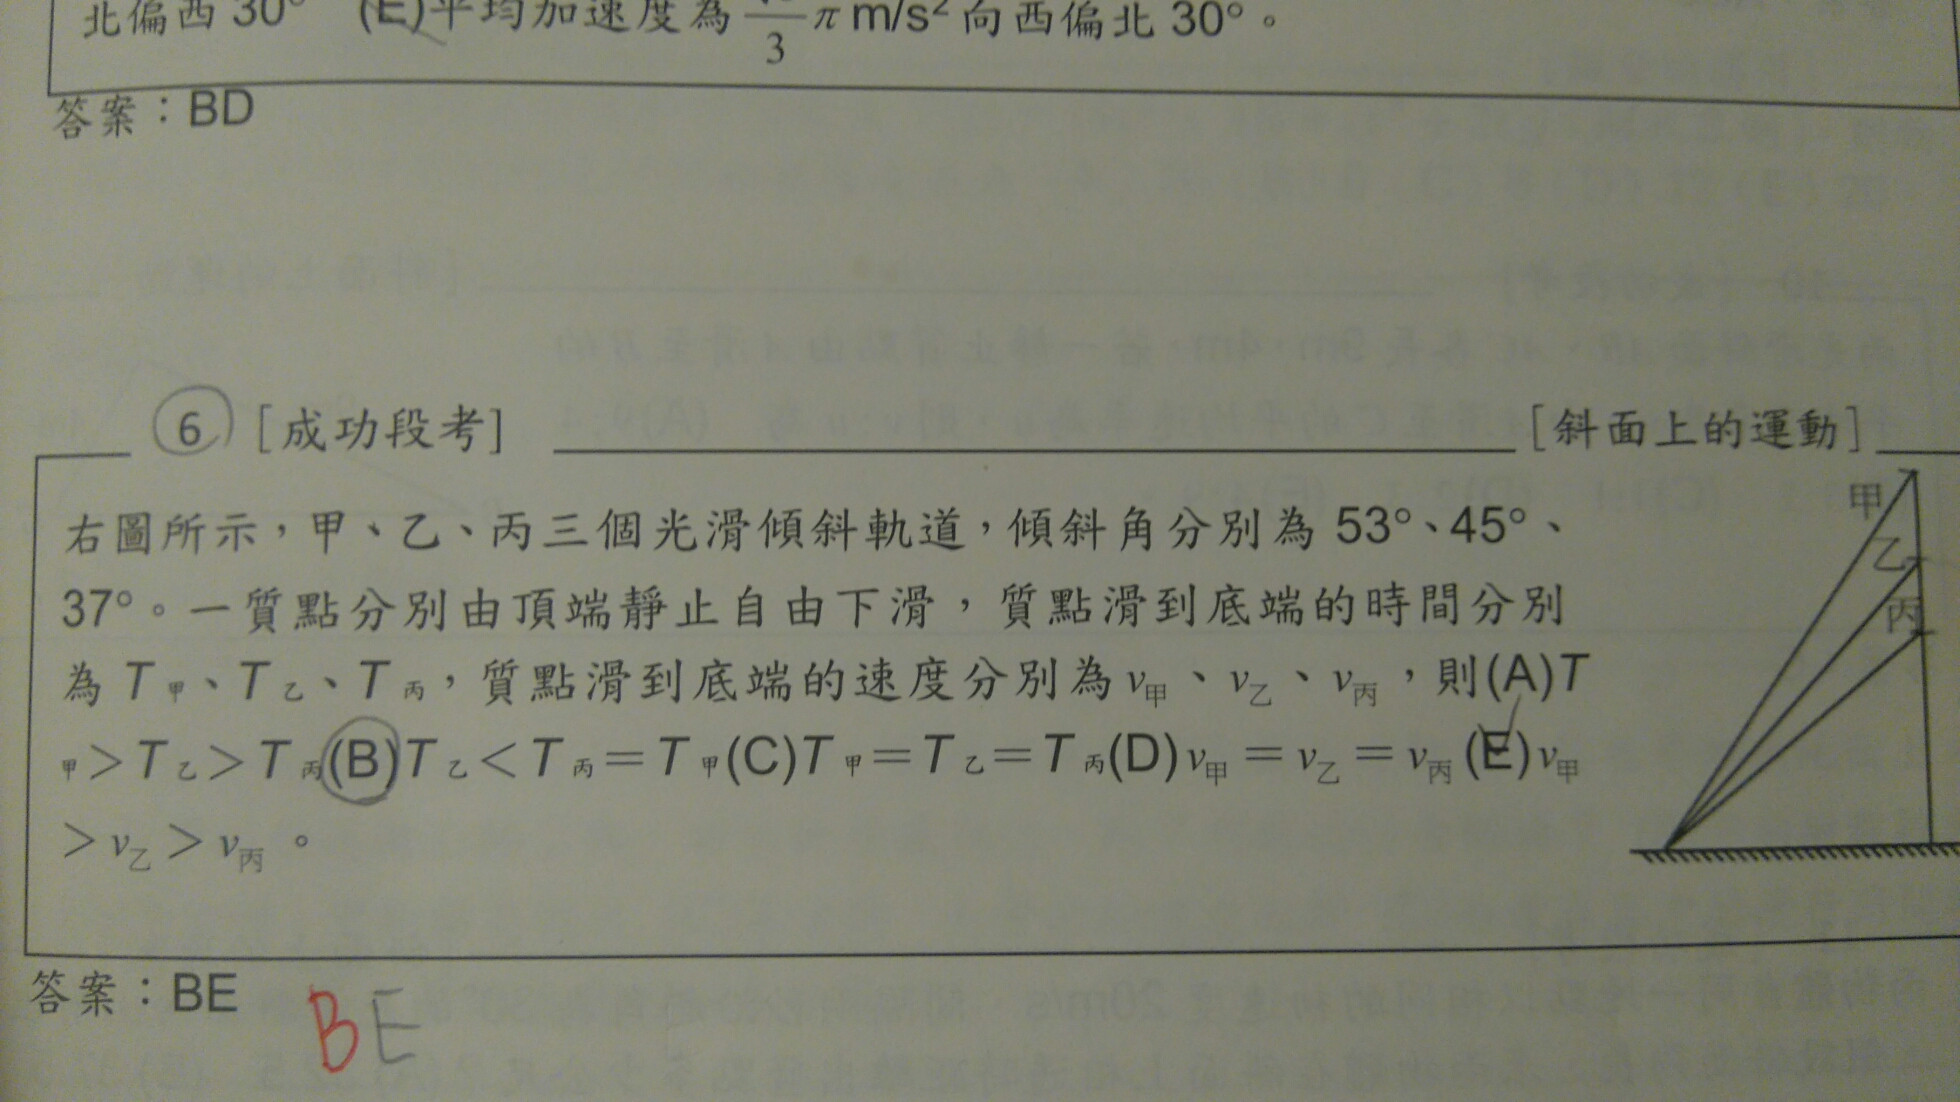 北偏西30° (E)平均加速度為 3 π m/s² 向西偏北 30°。
答案：BD
6 [成功段考] [斜面上的運動]
右圖所示，甲、乙、丙三個光滑傾斜軌道，傾斜角分別為 53°、45°、
37°。一質點分別由頂端靜止自由下滑，質點滑到底端的時間分別
為 T甲、T乙、T丙，質點滑到底端的速度分別為v甲、v乙、v丙，則(A)T
甲＞T乙＞T丙(B)T乙＜T丙＝T甲(C)T甲＝T乙＝T丙(D)v甲＝v乙＝v丙(E)v甲
＞v乙＞v丙。
甲
乙
丙
答案：BE
BE